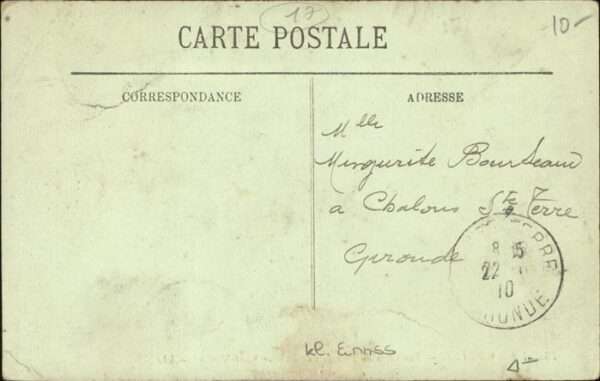 17
10-
CARTE POSTALE
CORRESPONDANCE
ADRESSE
Mlle
Margurite Bourseaud
à Chalons Ste Terre
Gironde
TERRE
8 05
22
10
RONDE
kl. Einriss